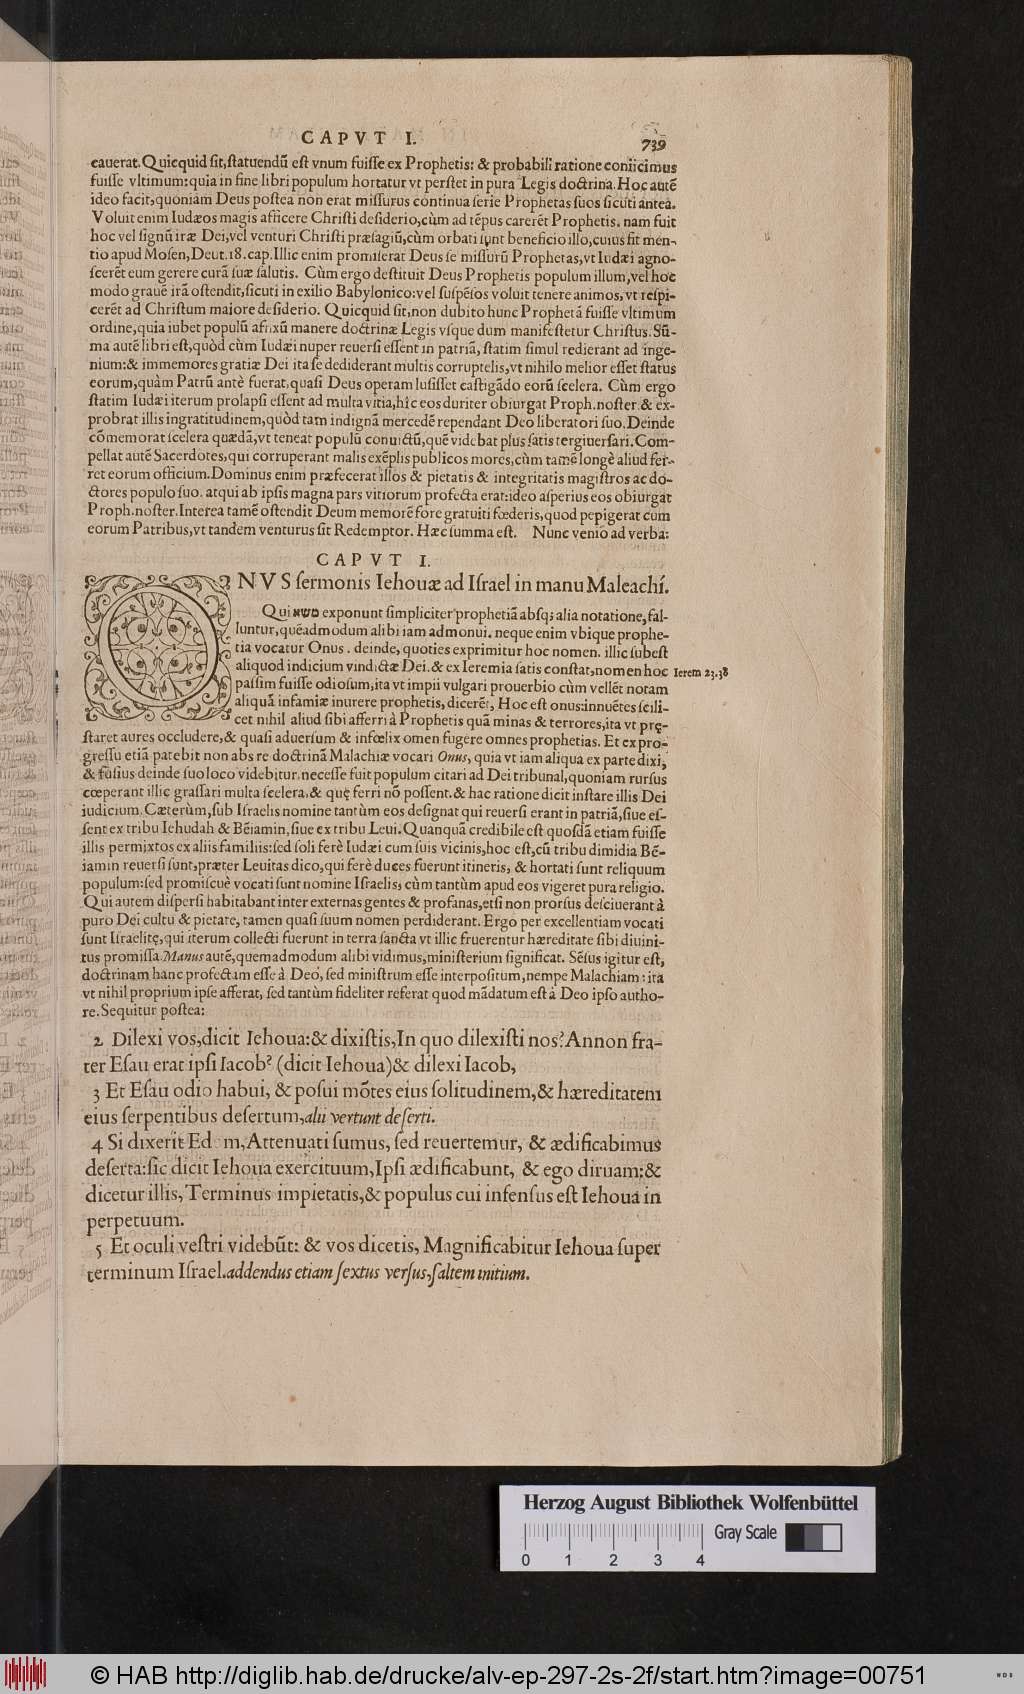 CAPVT I. 739
cauerat. Quicquid sit, statuendũ est vnum fuisse ex Prophetis: & probabili ratione coniicimus
fuisse vltimum: quia in fine libri populum hortatur vt perstet in pura Legis doctrina. Hoc autẽ
ideo facit, quoniam Deus postea non erat missurus continua serie Prophetas suos sicuti antea.
Voluit enim Iudæos magis afficere Christi desiderio, cùm ad tẽpus carerẽt Prophetis. nam fuit
hoc vel signũ iræ Dei, vel venturi Christi præsagiũ, cùm orbati sunt beneficio illo, cuius fit men-
tio apud Mosen, Deut. 18. cap. Illic enim promiserat Deus se missurũ Prophetas, vt Iudæi agno-
scerẽt eum gerere curã suæ salutis. Cùm ergo destituit Deus Prophetis populum illum, vel hoc
modo grauẽ irã ostendit, sicuti in exilio Babylonico: vel suspẽsos voluit tenere animos, vt respi-
cerẽt ad Christum maiore desiderio. Quicquid sit, non dubito hunc Prophetã fuisse vltimum
ordine, quia iubet populũ affixũ manere doctrinæ Legis vsque dum manifestetur Christus. Sũ-
ma autẽ libri est, quòd cùm Iudæi nuper reuersi essent in patriã, statim simul redierant ad inge-
nium: & immemores gratiæ Dei ita se dediderant multis corruptelis, vt nihilo melior esset status
eorum, quàm Patrũ antè fuerat, quasi Deus operam lusisset castigãdo eorũ scelera. Cùm ergo
statim Iudæi iterum prolapsi essent ad multa vitia, hîc eos duriter obiurgat Proph. noster & ex-
probrat illis ingratitudinem, quòd tam indignã mercedẽ rependant Deo liberatori suo. Deinde
cõmemorat scelera quædã, vt teneat populũ conuictũ, quẽ videbat plus satis tergiuersari. Com-
pellat autẽ Sacerdotes, qui corruperant malis exẽplis publicos mores, cùm tamẽ longè aliud fer-
ret eorum officium. Dominus enim præfecerat illos & pietatis & integritatis magistros ac do-
ctores populo suo. atqui ab ipsis magna pars vitiorum profecta erat: ideo asperius eos obiurgat
Proph. noster. Interea tamẽ ostendit Deum memorẽ fore gratuiti fœderis, quod pepigerat cum
eorum Patribus, vt tandem venturus sit Redemptor. Hæc summa est. Nunc venio ad verba:
CAPVT I.
ONVS sermonis Iehouæ ad Israel in manu Maleachí.
Qui משא exponunt simpliciter prophetiã absq; alia notatione, fal-
luntur, quẽadmodum alibi iam admonui. neque enim vbique prophe-
tia vocatur Onus. deinde, quoties exprimitur hoc nomen. illic subest
aliquod indicium vindictæ Dei. & ex Ieremia satis constat, nomen hoc Ierem 23.38
passim fuisse odiosum, ita vt impii vulgari prouerbio cùm vellẽt notam
aliquã infamiæ inurere prophetis, dicerẽt, Hoc est onus: innuẽtes scili-
cet nihil aliud sibi afferri à Prophetis quã minas & terrores, ita vt pręs-
staret aures occludere, & quasi aduersum & infœlix omen fugere omnes prophetias. Et ex pro-
gressu etiã patebit non abs re doctrinã Malachiæ vocari Onus, quia vt iam aliqua ex parte dixi,
& fusius deinde suo loco videbitur. necesse fuit populum citari ad Dei tribunal, quoniam rursus
cœperant illic grassari multa scelera, & quę ferri nõ possent. & hac ratione dicit instare illis Dei
iudicium. Cæterùm, sub Israelis nomine tantùm eos designat qui reuersi erant in patriã, siue es-
sent ex tribu Iehudah & Bẽiamin, siue ex tribu Leui. Quanquã credibile est quosdã etiam fuisse
illis permixtos ex aliis familiis: sed soli ferè Iudæi cum suis vicinis, hoc est, cũ tribu dimidia Bẽ-
iamin reuersi sunt, præter Leuitas dico, qui ferè duces fuerunt itineris, & hortati sunt reliquum
populum: sed promiscuè vocati sunt nomine Israelis, cùm tantùm apud eos vigeret pura religio.
Qui autem dispersi habitabant inter externas gentes & profanas, etsi non prorsus desciuerant à
puro Dei cultu & pietate, tamen quasi suum nomen perdiderant. Ergo per excellentiam vocati
sunt Israelitę, qui iterum collecti fuerunt in terra sancta vt illic fruerentur hæreditate sibi diuini-
tus promissa. Manus autẽ, quemadmodum alibi vidimus, ministerium significat. Sẽsus igitur est,
doctrinam hanc profectam esse à Deo, sed ministrum esse interpositum, nempe Malachiam: ita
vt nihil proprium ipse afferat, sed tantùm fideliter referat quod mãdatum est à Deo ipso autho-
re. Sequitur postea:
2 Dilexi vos, dicit Iehoua: & dixistis, In quo dilexisti nos? Annon fra-
ter Esau erat ipsi Iacob? (dicit Iehoua) & dilexi Iacob,
3 Et Esau odio habui, & posui mõtes eius solitudinem, & hæreditatem
eius serpentibus desertum, alii vertunt deserti.
4 Si dixerit Edom, Attenuati sumus, sed reuertemur, & ædificabimus
deserta: sic dicit Iehoua exercituum, Ipsi ædificabunt, & ego diruam: &
dicetur illis, Terminus impietatis, & populus cui infensus est Iehoua in
perpetuum.
5 Et oculi vestri videbũt: & vos dicetis, Magnificabitur Iehoua super
terminum Israel. addendus etiam sextus versus, saltem initium.
Herzog August Bibliothek Wolfenbüttel
Gray Scale
0 1 2 3 4
© HAB http://diglib.hab.de/drucke/alv-ep-297-2s-2f/start.htm?image=00751